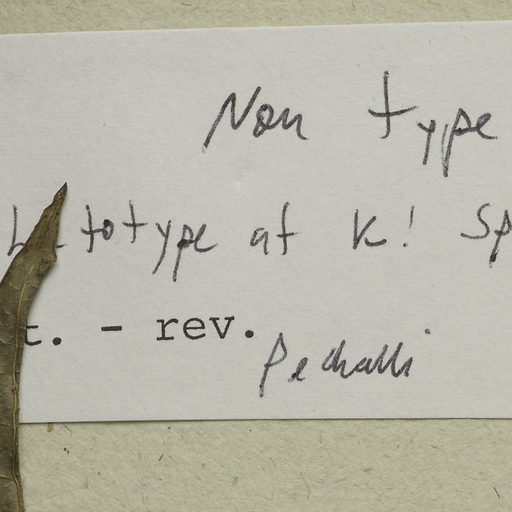 Non type
Lectotype at K! Sp
t. - rev.
Pedralli